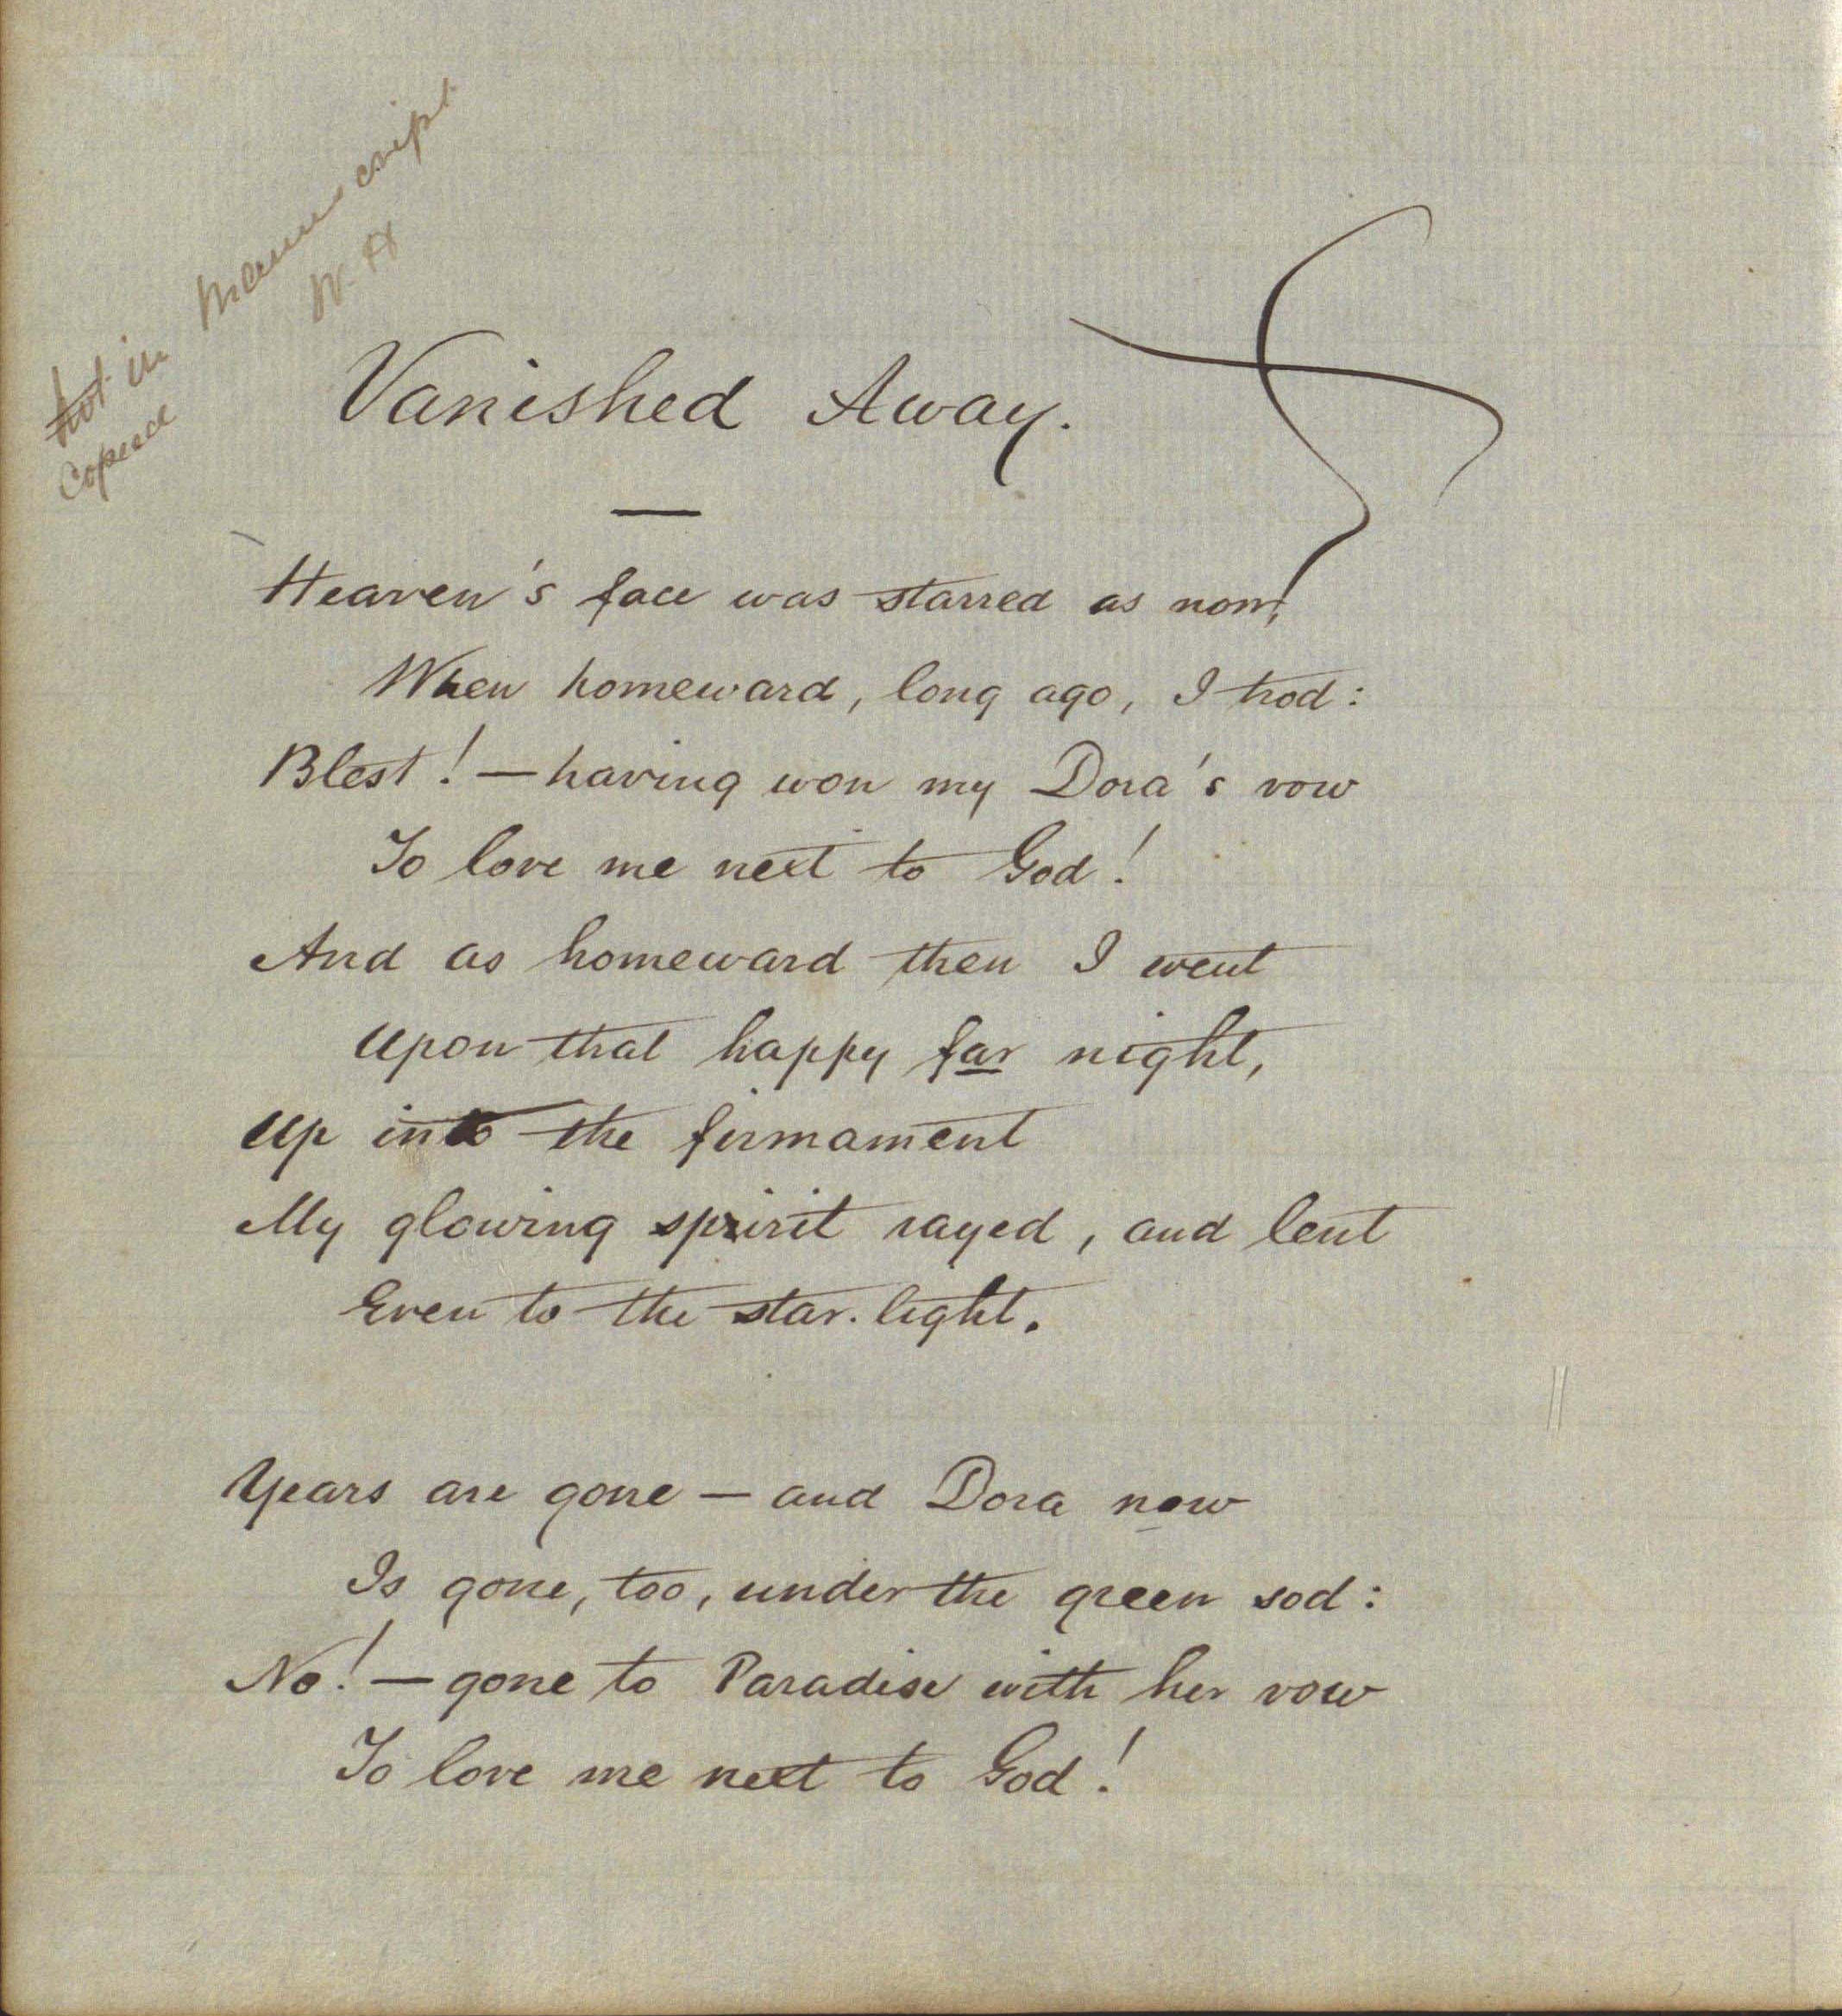 not in manuscript
W. H
Copied
Vanished Away.
Heaven's face was starred as now,
When homeward, long ago, I trod:
Blest! — having won my Dora's vow
To love me next to God!
And as homeward then I went
Upon that happy far night,
Up into the firmament
My glowing spirit rayed, and lent
Even to the star-light.
Years are gone — and Dora now
Is gone, too, under the green sod:
No! — gone to Paradise with her vow
To love me next to God!